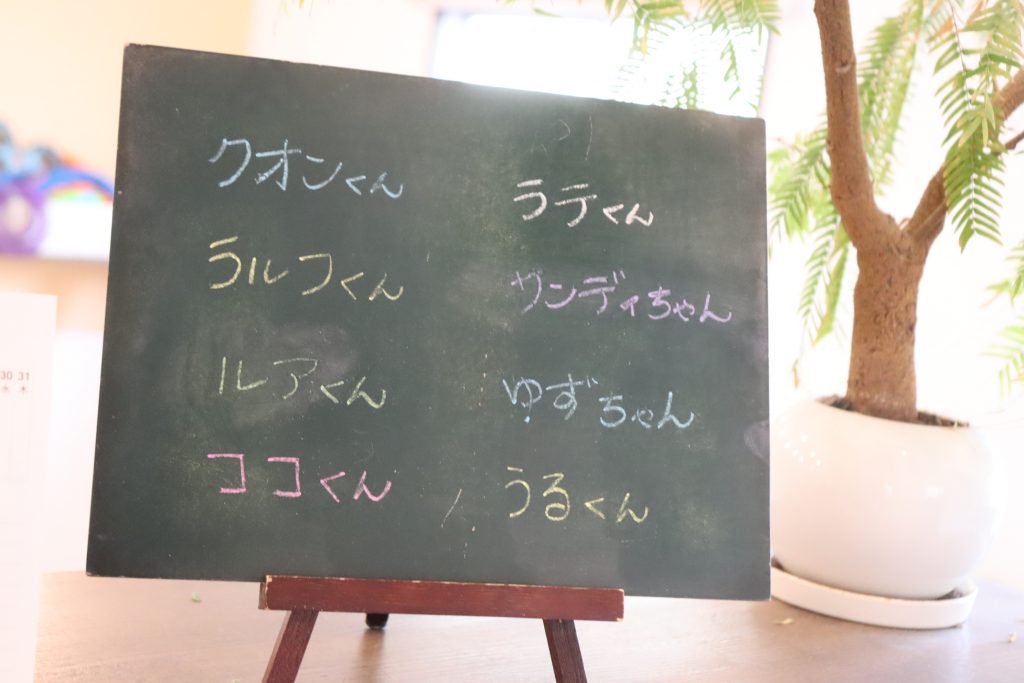 クオンくん
ラルフくん
ルアくん
ココくん
ラテくん
サンディちゃん
ゆずちゃん
うるくん
30 31
水 木